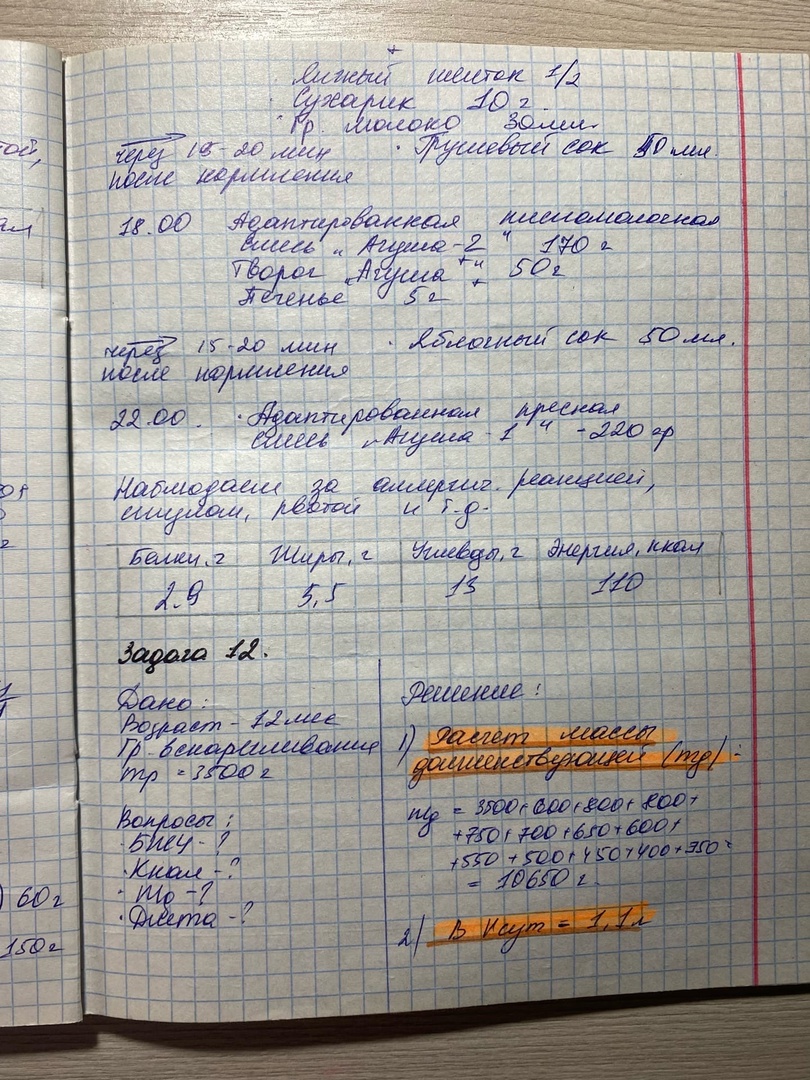 Яичный желток 1/2
Сухарик 10 г.
Гр. молоко 30 мл.
через 15-20 мин · Грушевый сок 50 мл.
после кормления
18.00 Адаптированная кисломолочная
смесь „Агуша-2" 170 г
Творог „Агуша" 50 г
Печенье 5 г
через 15-20 мин · Яблочный сок 50 мл.
после кормления
22.00. · Адаптированная пресная
смесь „Агуша-1" - 220 гр
Наблюдаем за аллергич. реакцией,
стулом, рвотой и т.д.
Белки, г Жиры, г Углеводы, г Энергия, ккал
2.9 5,5 13 110
Задача 12.
Дано:
Возраст - 12 мес
Гр. вскармливание
mр = 3500 г
Вопросы:
· БЖУ - ?
· Ккал - ?
· mд - ?
· Диета - ?
Решение:
1) Расчет массы
долженствующей (mд):
mд = 3500+600+800+800+
+750+700+650+600+
+550+500+450+400+350=
= 10650 г.
2) В Vсут = 1,1 л
той,
60 г
150 г